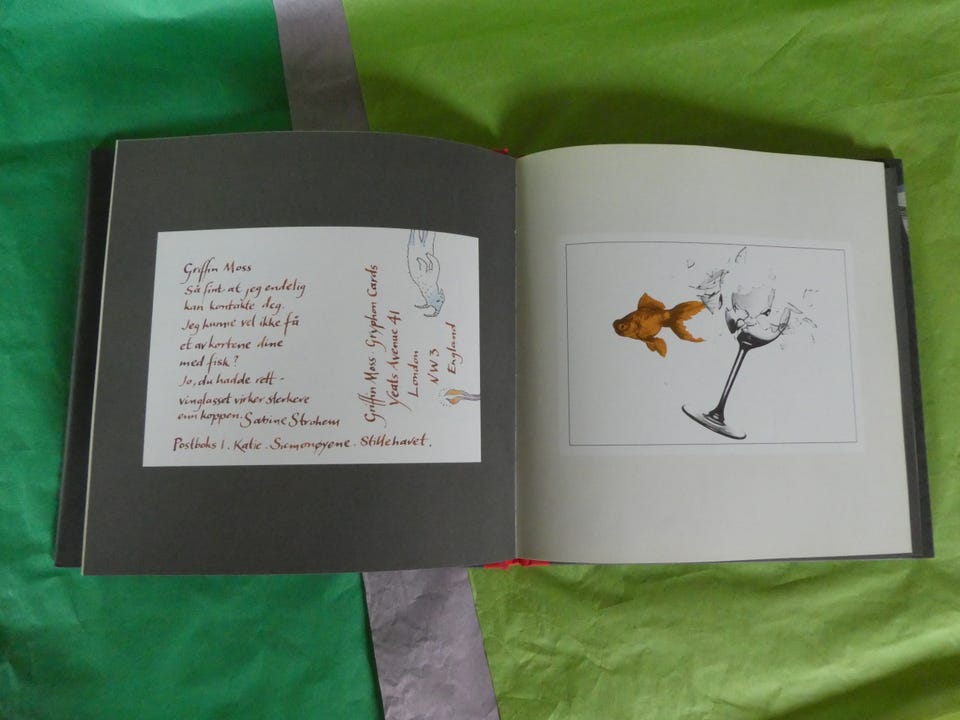 Griffin Moss
Så fint at jeg endelig
kan kontakte deg.
Jeg kunne vel ikke få
et av kortene dine
med fisk?
Jo, du hadde rett -
vinglasset virker sterkere
enn koppen. Sabine Strohem
Postboks 1. Katie. Sicmonøyene. Stillehavet.
Griffin Moss. Gryphon Cards
Yeats Avenue 41
London
NW3
England